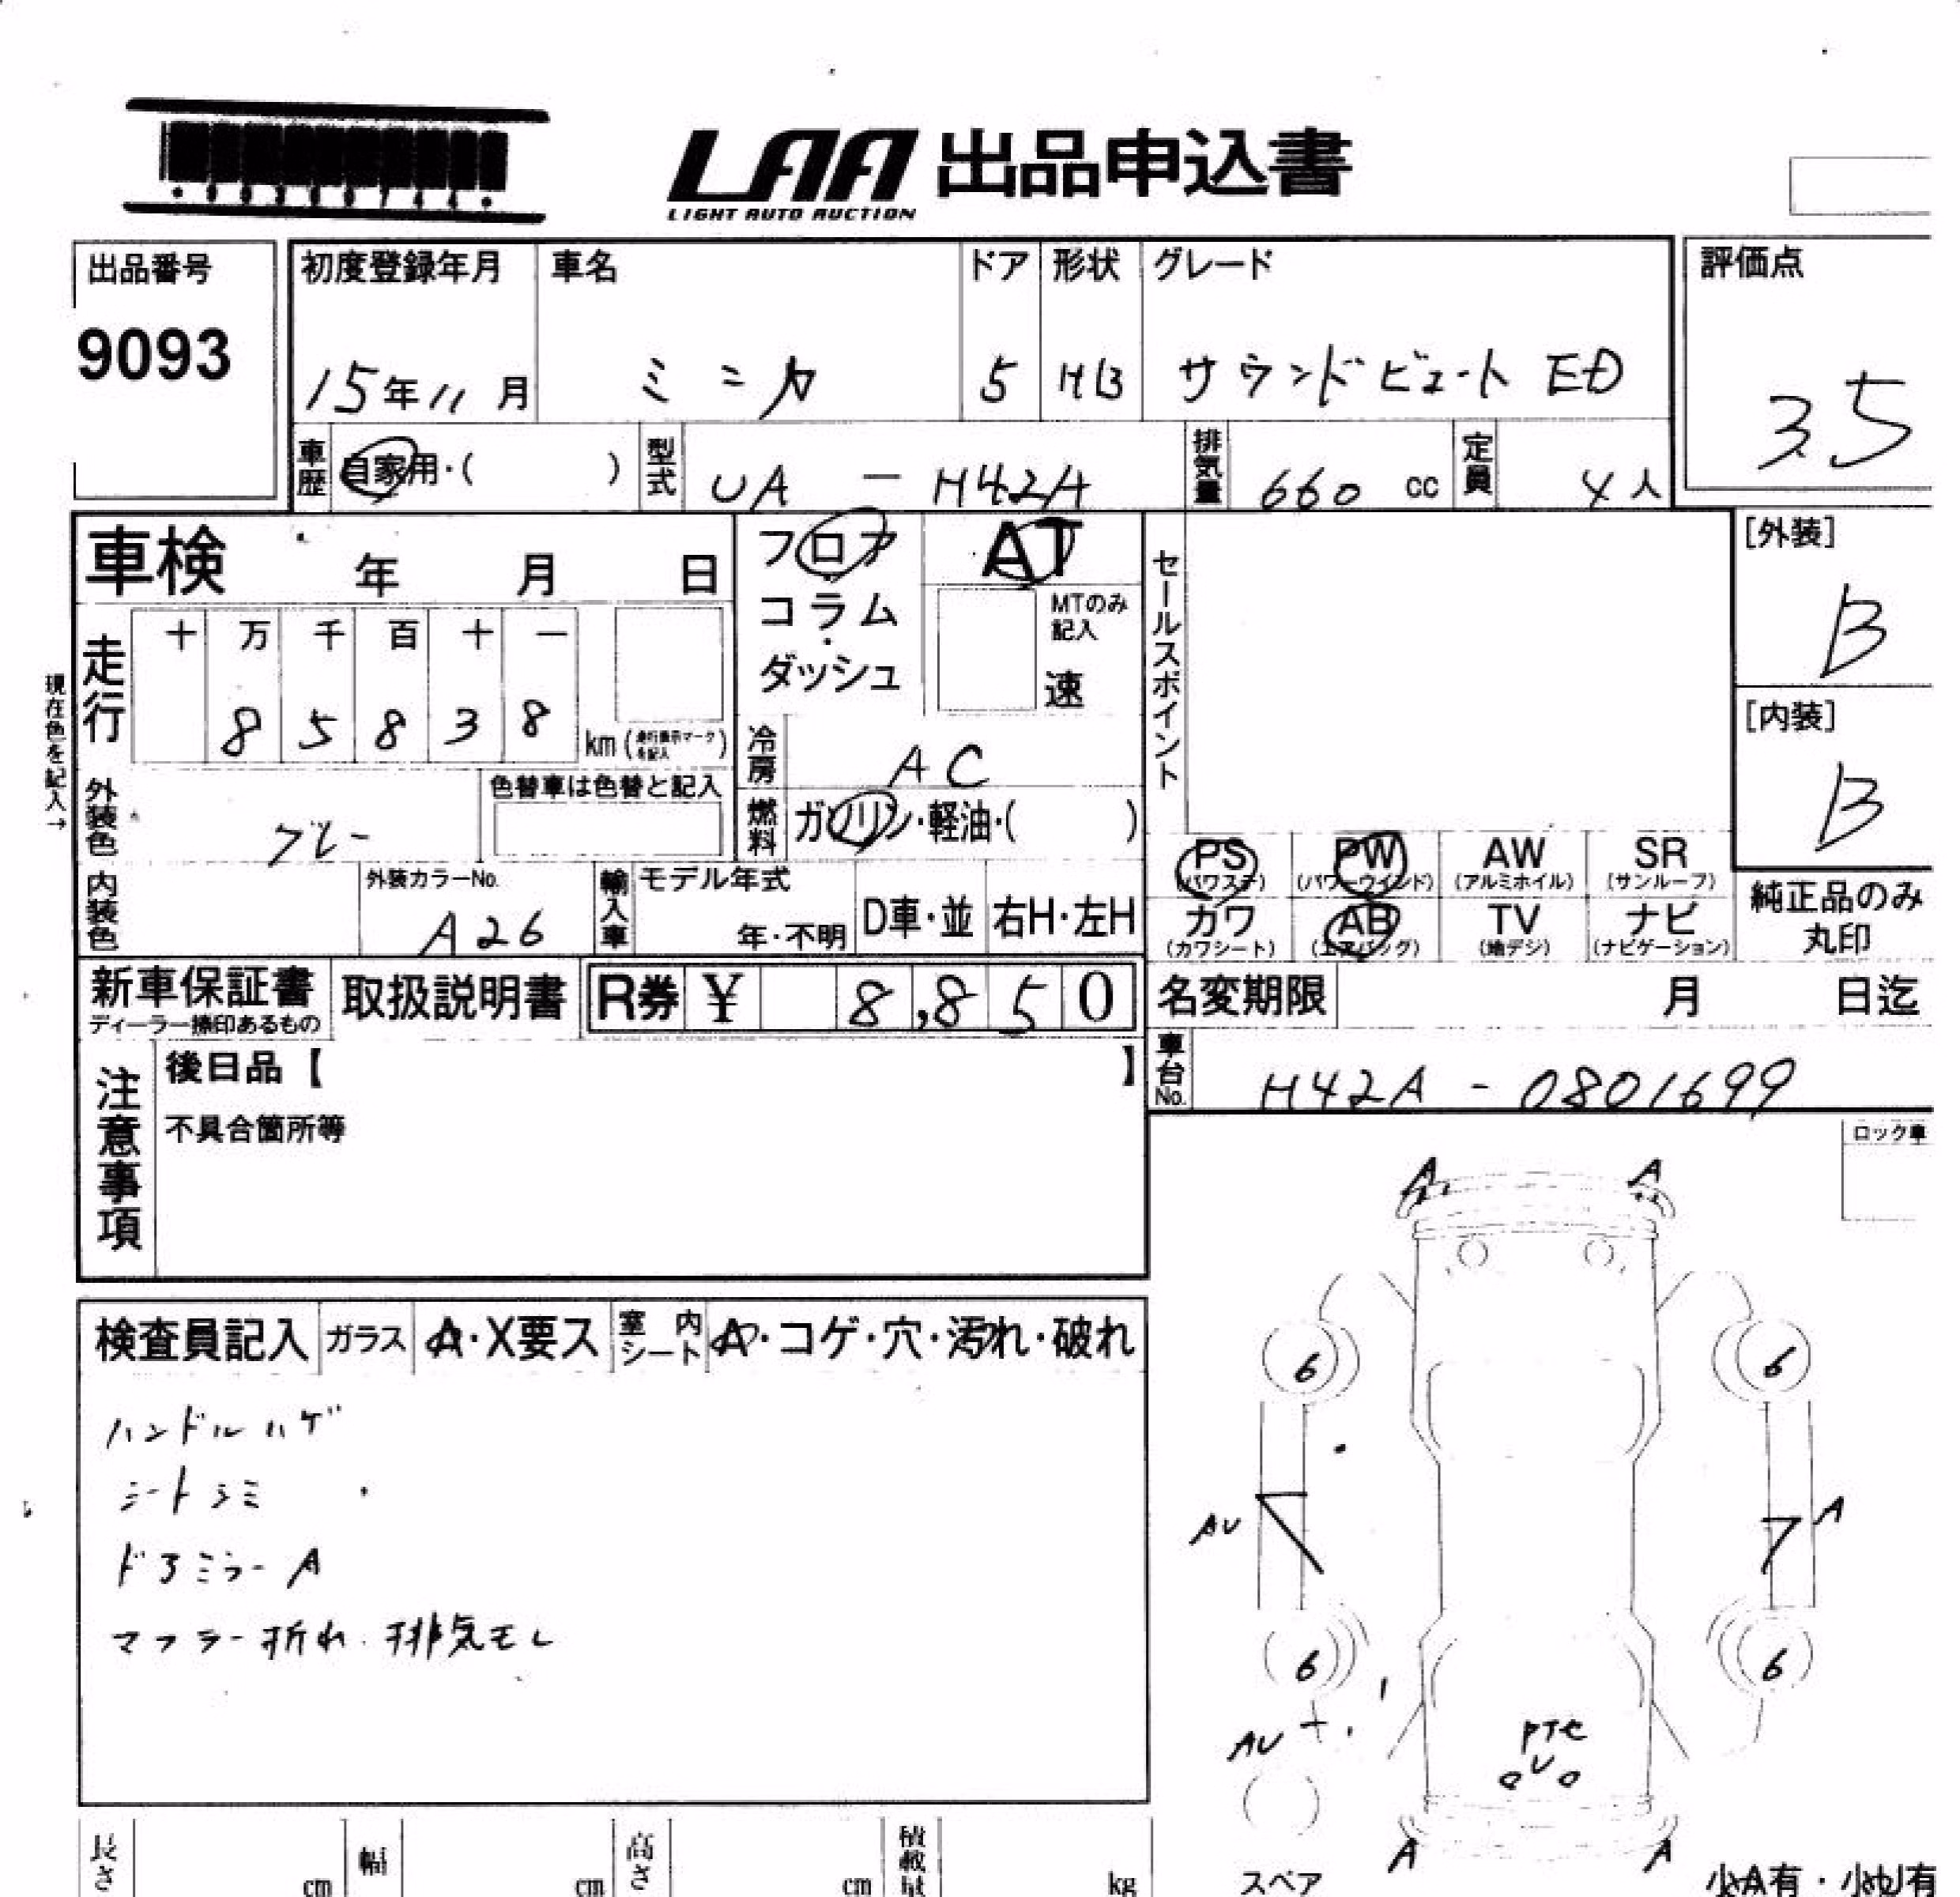 LAA 出品申込書
LIGHT AUTO AUCTION
出品番号
9093
初度登録年月 車名 ドア 形状 グレード 評価点
15年11月 ミニカ 5 HB サウンドビュート ED 3.5
車歴 自家用・( ) 型式 UA - H42A 排気量 660 cc 定員 4人
車検 年 月 日
フロア・コラム・ダッシュ
AT
MTのみ記入
速
セールスポイント
[外装]
B
[内装]
B
現在色を記入→
走行 十 万 千 百 十 一
8 5 8 3 8 km
冷房 AC
外装色 グレー
色替車は色替と記入
燃料 ガソリン・軽油・( )
PS (パワステ) PW (パワーウインド) AW (アルミホイル) SR (サンルーフ)
カワ (カワシート) AB (エアバッグ) TV (地デジ) ナビ (ナビゲーション)
純正品のみ
丸印
内装色 外装カラーNo. A26
輸入車 モデル年式 年・不明 D車・並 右H・左H
新車保証書
ディーラー捺印あるもの
取扱説明書
R券 ¥ 8,850
名変期限 月 日迄
車台No. H42A - 0801699
注意事項
後日品【 】
不具合箇所等
ロック車
検査員記入 ガラス A・X要ス 室内シート A・コゲ・穴・汚れ・破れ
ハンドルハゲ
シートシミ
ドアミラーA
マフラー折れ 排気モレ
A A
6 6
AU A
6 6
AU
U
A A
スペア
小A有・小U有
長さ cm 幅 cm 高さ cm 積載量 kg